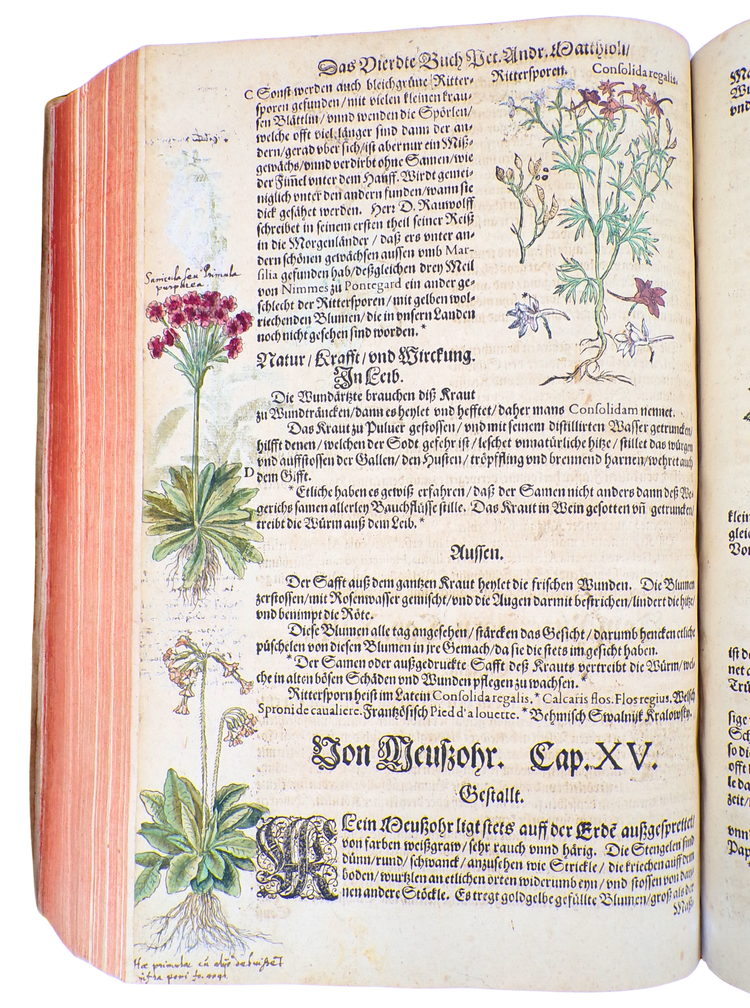 Das Vierdte Buch Pet. Andr. Matthioli/
Rittersporen. Consolida regalis.
C Sonst werden auch bleichgrüne Ritter-
sporen gefunden/mit vielen kleinen krau-
sen Blättlin/vnnd wenden die Spörlen/
welche offt viel länger sind dann der an-
dern/gerad vber sich/ist aber nur ein Miß-
gewächs/vnnd verdirbt ohne Samen/wie
der Fim̃el vnter dem Hauff. Wirdt gemei-
niglich vnter den andern funden/wann sie
dick gesähet werden. Herr D. Rauwolff
schreibet in seinem ersten theil seiner Reiß
in die Morgenländer/daß ers vnter an-
dern schönen gewächsen aussen vmb Mar-
silia gefunden hab/deßgleichen drey Meil
von Nimmes zu Pontegard ein ander ge-
schlecht der Rittersporen/mit gelben wol-
riechenden Blumen/die in vnsern Landen
noch nicht gesehen sind worden. *
Sanicula seu Primula
purpurea
Natur/Krafft/vnd Wirckung.
In Leib.
Die Wundärtzte brauchen diß Kraut
zu Wundträncken/dann es heylet vnd hefftet/daher mans Consolidam nennet.
Das Kraut zu Puluer gestossen/vnd mit seinem distillirten Wasser getruncken/
hilfft denen/welchen der Sodt gefehr ist/leschet vnnatürliche hitze/stillet das würgen
vnd auffstossen der Gallen/den Husten/tröpffling vnd brennend harnen/wehret auch
D dem Gifft.
*Etliche haben es gewiß erfahren/daß der Samen nicht anders dann deß We-
gerichs samen allerley Bauchflüsse stille. Das Kraut in Wein gesotten vn̄ getruncken/
treibt die Würm auß dem Leib. *
Aussen.
Der Safft auß dem gantzen Kraut heylet die frischen Wunden. Die Blumen
zerstossen/mit Rosenwasser gemischt/vnd die Augen darmit bestrichen/lindert die hitze/
vnd benimpt die Röte.
Diese Blumen alle tag angesehen/stärcken das Gesicht/darumb hencken etliche
püschelen von diesen Blumen in jre Gemach/da sie die stets im gesicht haben.
*Der Samen oder außgedruckte Safft deß Krauts vertreibt die Würm/wel-
che in alten bösen Schäden vnd Wunden pflegen zu wachsen. *
Rittersporn heist im Latein Consolida regalis, * Calcaris flos. Flos regius. Welsch
Sproni de caualiere. Frantzösisch Pied d'alouette. * Behmisch Swalnijk Kralowsky.
Von Meußohr. Cap. XV.
Gestallt.
Klein Meußohr ligt stets auff der Erdē außgespreitet/
von farben weißgraw/sehr rauch vnnd härig. Die Stengelen sind
dünn/rund/schwanck/anzusehen wie Strickle/die kriechen auff dem
boden/wurtzlen an etlichen orten widerumb eyn/vnd stossen von dan-
nen andere Stöckle. Es tregt goldgelbe gefüllte Blumen/groß als der
Maß-